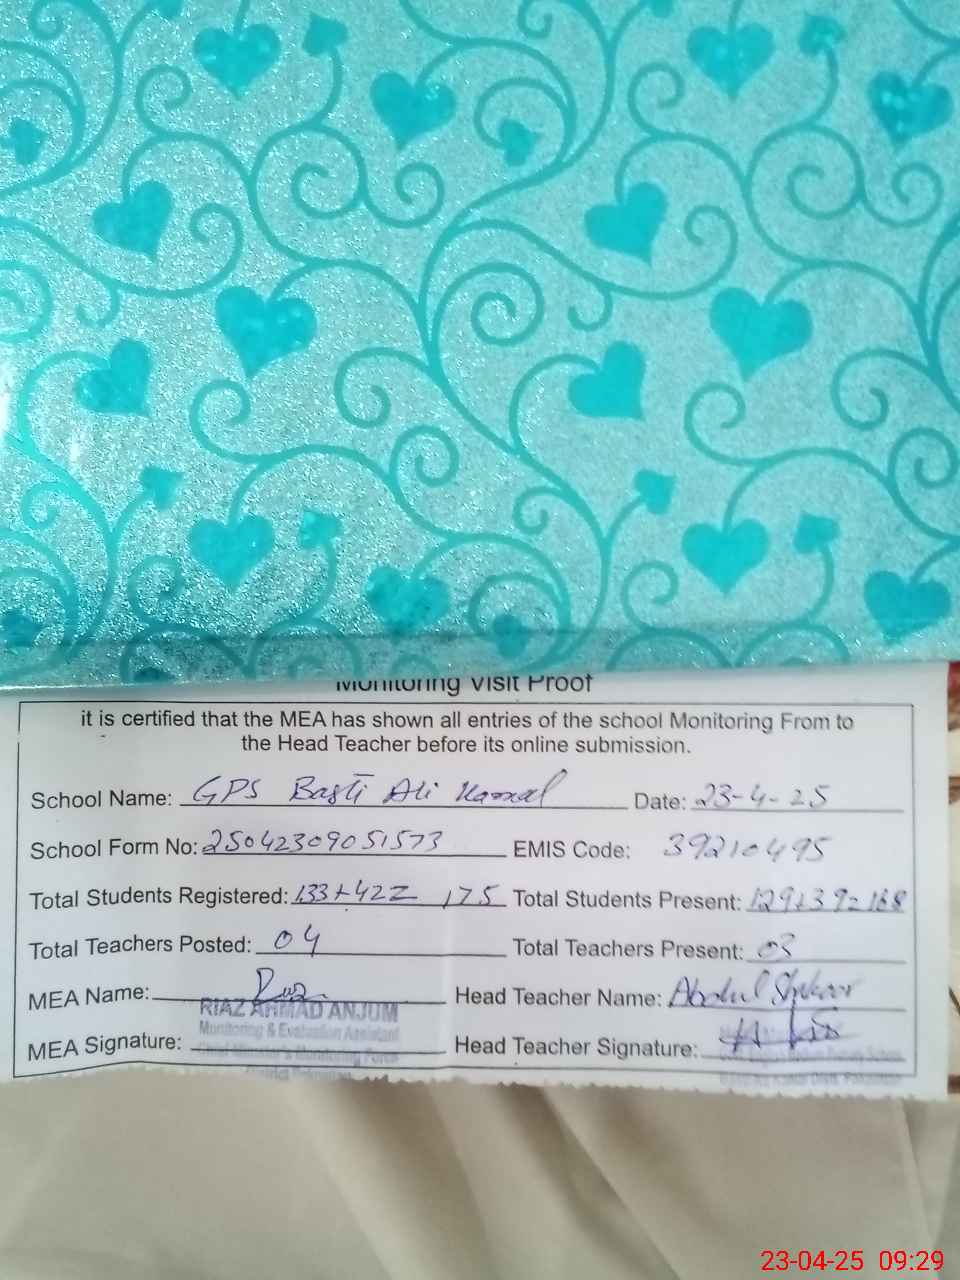 Monitoring Visit Proof
it is certified that the MEA has shown all entries of the school Monitoring From to
the Head Teacher before its online submission.
School Name: GPS Basti Ali Kamal Date: 23-4-25
School Form No: 25042309051573 EMIS Code: 39210495
Total Students Registered: 133+42= 175 Total Students Present: 129+39=168
Total Teachers Posted: 04 Total Teachers Present: 03
MEA Name: Head Teacher Name: Abdul Shkoor
RIAZ AHMAD ANJUM
Monitoring & Evaluation Assistant
MEA Signature: Head Teacher Signature:
Chief Minister's Monitoring Force
23-04-25 09:29